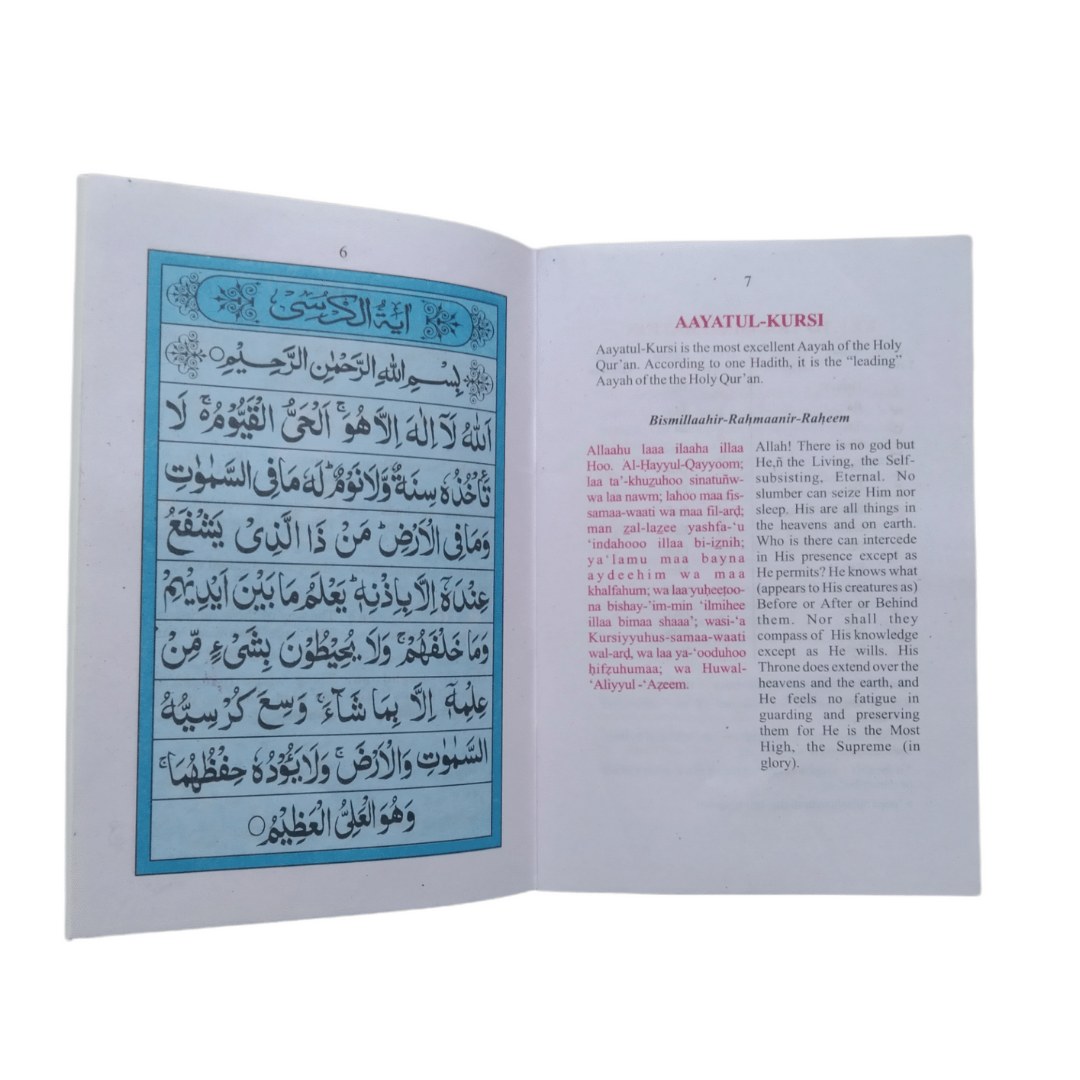 6
اٰيَةُ الْكُرْسِىّ
بِسْمِ اللهِ الرَّحْمٰنِ الرَّحِيْمِ○
اَللهُ لَآ اِلٰهَ اِلَّا هُوَ ۚ اَلْحَىُّ الْقَيُّوْمُ ۚ لَا
تَاْخُذُهٗ سِنَةٌ وَّلَا نَوْمٌ ؕ لَهٗ مَا فِى السَّمٰوٰتِ
وَمَا فِى الْاَرْضِ ؕ مَنْ ذَا الَّذِىْ يَشْفَعُ
عِنْدَهٗٓ اِلَّا بِاِذْنِهٖ ؕ يَعْلَمُ مَا بَيْنَ اَيْدِيْهِمْ
وَمَا خَلْفَهُمْ ۚ وَلَا يُحِيْطُوْنَ بِشَىْءٍ مِّنْ
عِلْمِهٖٓ اِلَّا بِمَا شَآءَ ۚ وَسِعَ كُرْسِيُّهُ
السَّمٰوٰتِ وَالْاَرْضَ ۚ وَلَا يَؤُدُهٗ حِفْظُهُمَا ۚ
وَهُوَ الْعَلِىُّ الْعَظِيْمُ○
7
AAYATUL-KURSI
Aayatul-Kursi is the most excellent Aayah of the Holy
Qur'an. According to one Hadith, it is the “leading”
Aayah of the the Holy Qur'an.
Bismillaahir-Raḥmaanir-Raḥeem
Allaahu laaa ilaaha illaa
Hoo. Al-Ḥayyul-Qayyoom;
laa ta’-khuẓuhoo sinatuñw-
wa laa nawm; lahoo maa fis-
samaa-waati wa maa fil-arḍ;
man ẓal-laẓee yashfa-‘u
‘indahooo illaa bi-iẓnih;
ya‘lamu maa bayna
aydeehim wa maa
khalfahum; wa laa yuḥeeṭoo-
na bishay-’im-min ‘ilmihee
illaa bimaa shaaa’; wasi-‘a
Kursiyyuhus-samaa-waati
wal-arḍ, wa laa ya-‘ooduhoo
ḥifẓuhumaa; wa Huwal-
‘Aliyyul -‘Aẓeem.
Allah! There is no god but
He,ñ the Living, the Self-
subsisting, Eternal. No
slumber can seize Him nor
sleep. His are all things in
the heavens and on earth.
Who is there can intercede
in His presence except as
He permits? He knows what
(appears to His creatures as)
Before or After or Behind
them. Nor shall they
compass of His knowledge
except as He wills. His
Throne does extend over the
heavens and the earth, and
He feels no fatigue in
guarding and preserving
them for He is the Most
High, the Supreme (in
glory).